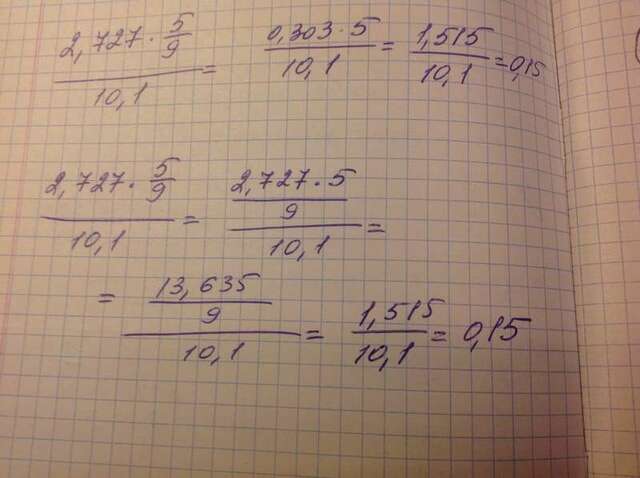 2,727 · 5/9 / 10,1 = 0,303 · 5 / 10,1 = 1,515 / 10,1 = 0,15
2,727 · 5/9 / 10,1 = 2,727 · 5 / 9 / 10,1 =
= 13,635 / 9 / 10,1 = 1,515 / 10,1 = 0,15